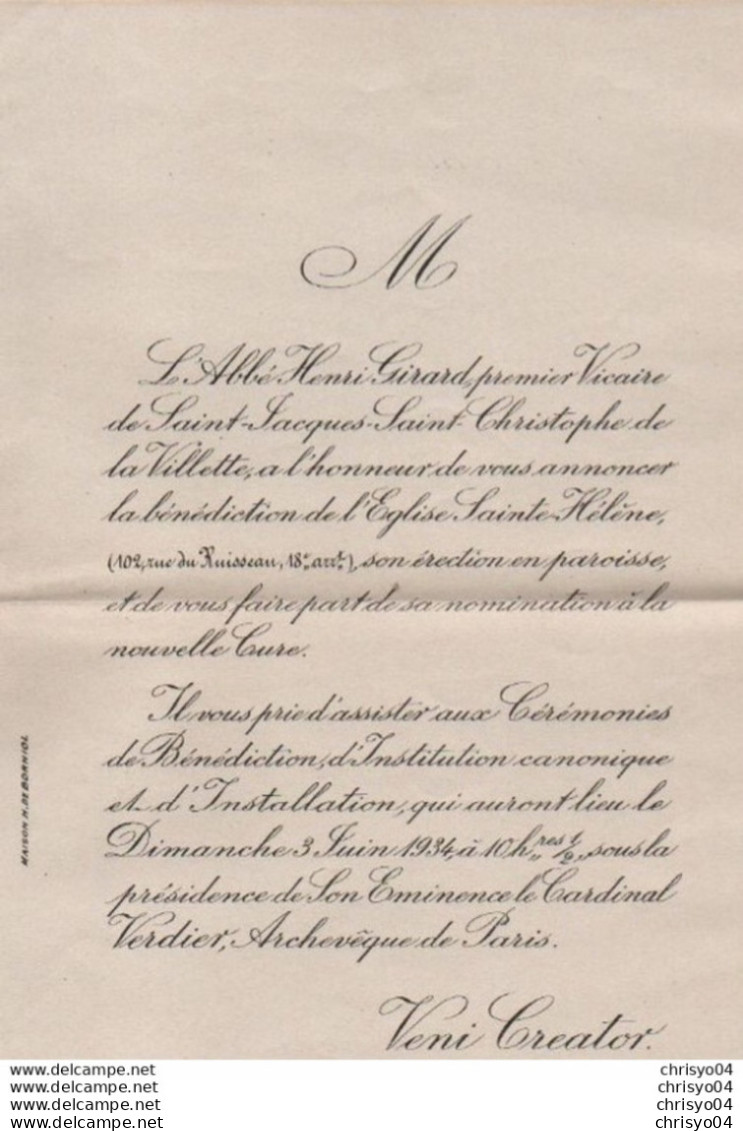 M
L'Abbé Henri Girard, premier Vicaire
de Saint-Jacques-Saint-Christophe de
la Villette, a l'honneur de vous annoncer
la bénédiction de l'Eglise Sainte-Hélène,
(102, rue du Ruisseau, 18e arrt.), son érection en paroisse,
et de vous faire part de sa nomination à la
nouvelle Cure.
Il vous prie d'assister aux Cérémonies
de Bénédiction, d'Institution canonique
et d'Installation, qui auront lieu le
Dimanche 3 Juin 1934, à 10 hres 1/2, sous la
présidence de Son Eminence le Cardinal
Verdier, Archevêque de Paris.
Veni Creator.
MAISON H. DE BORNIOL
www.delcampe.net chrisyo04
www.delcampe.net chrisyo04
www.delcampe.net chrisyo04
www.delcampe.net chrisyo04